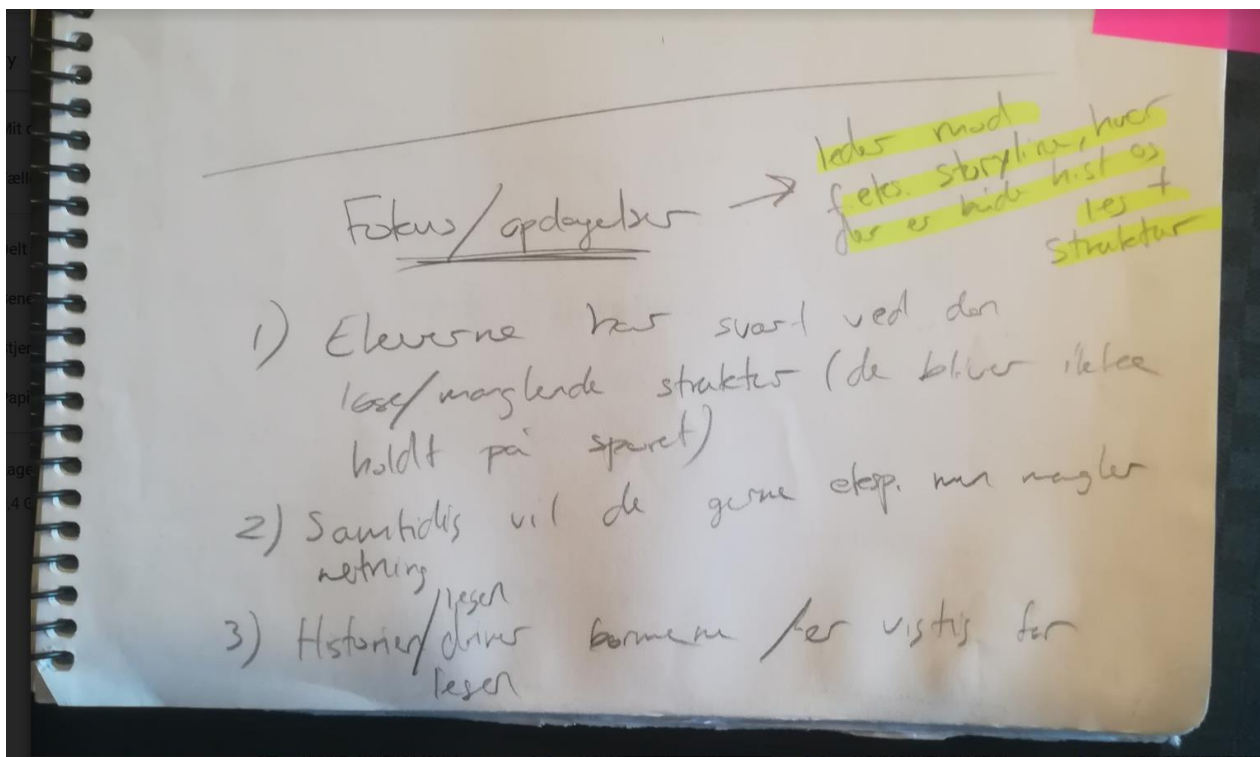 Fokus/opdagelser →
leder mod
f.eks. storyline, hvor
der er både hist og
leg +
struktur
1) Eleverne har svært ved den
løse/manglende struktur (de bliver ikke
holdt på sporet)
2) Samtidig vil de gerne eksp. men mangler
retning
3) Historien/legen driver børnene /er vigtig for
legen